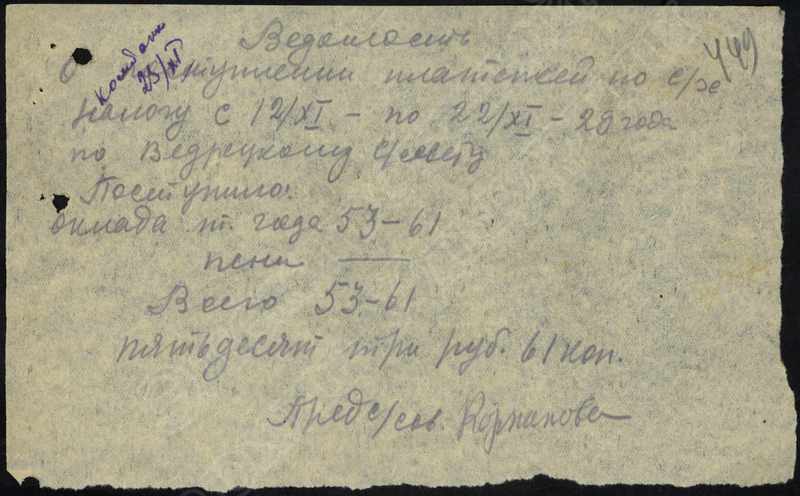 Ведомость
449
25/XI
О поступлении платежей по с/х
налогу с 12/XI - по 22/XI - 28 года
по Ведрецкому с/совету
Поступило:
оклада т. года 53-61
пени —
Всего 53-61
пятьдесят три руб. 61 коп.
Пред с/сов.